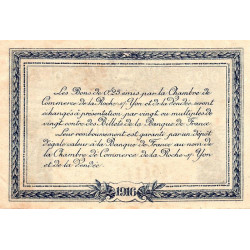 Les Bons de 0f25 émis par la Chambre de
Commerce de la Roche-s/-Yon et de la Vendée seront
échangés à présentation par vingt ou multiples de
vingt contre des Billets de la Banque de France.
Leur remboursement est garanti par un dépôt
d'égale valeur à la Banque de France au nom de
la Chambre de Commerce de la Roche-s/-Yon
et de la Vendée.
1916